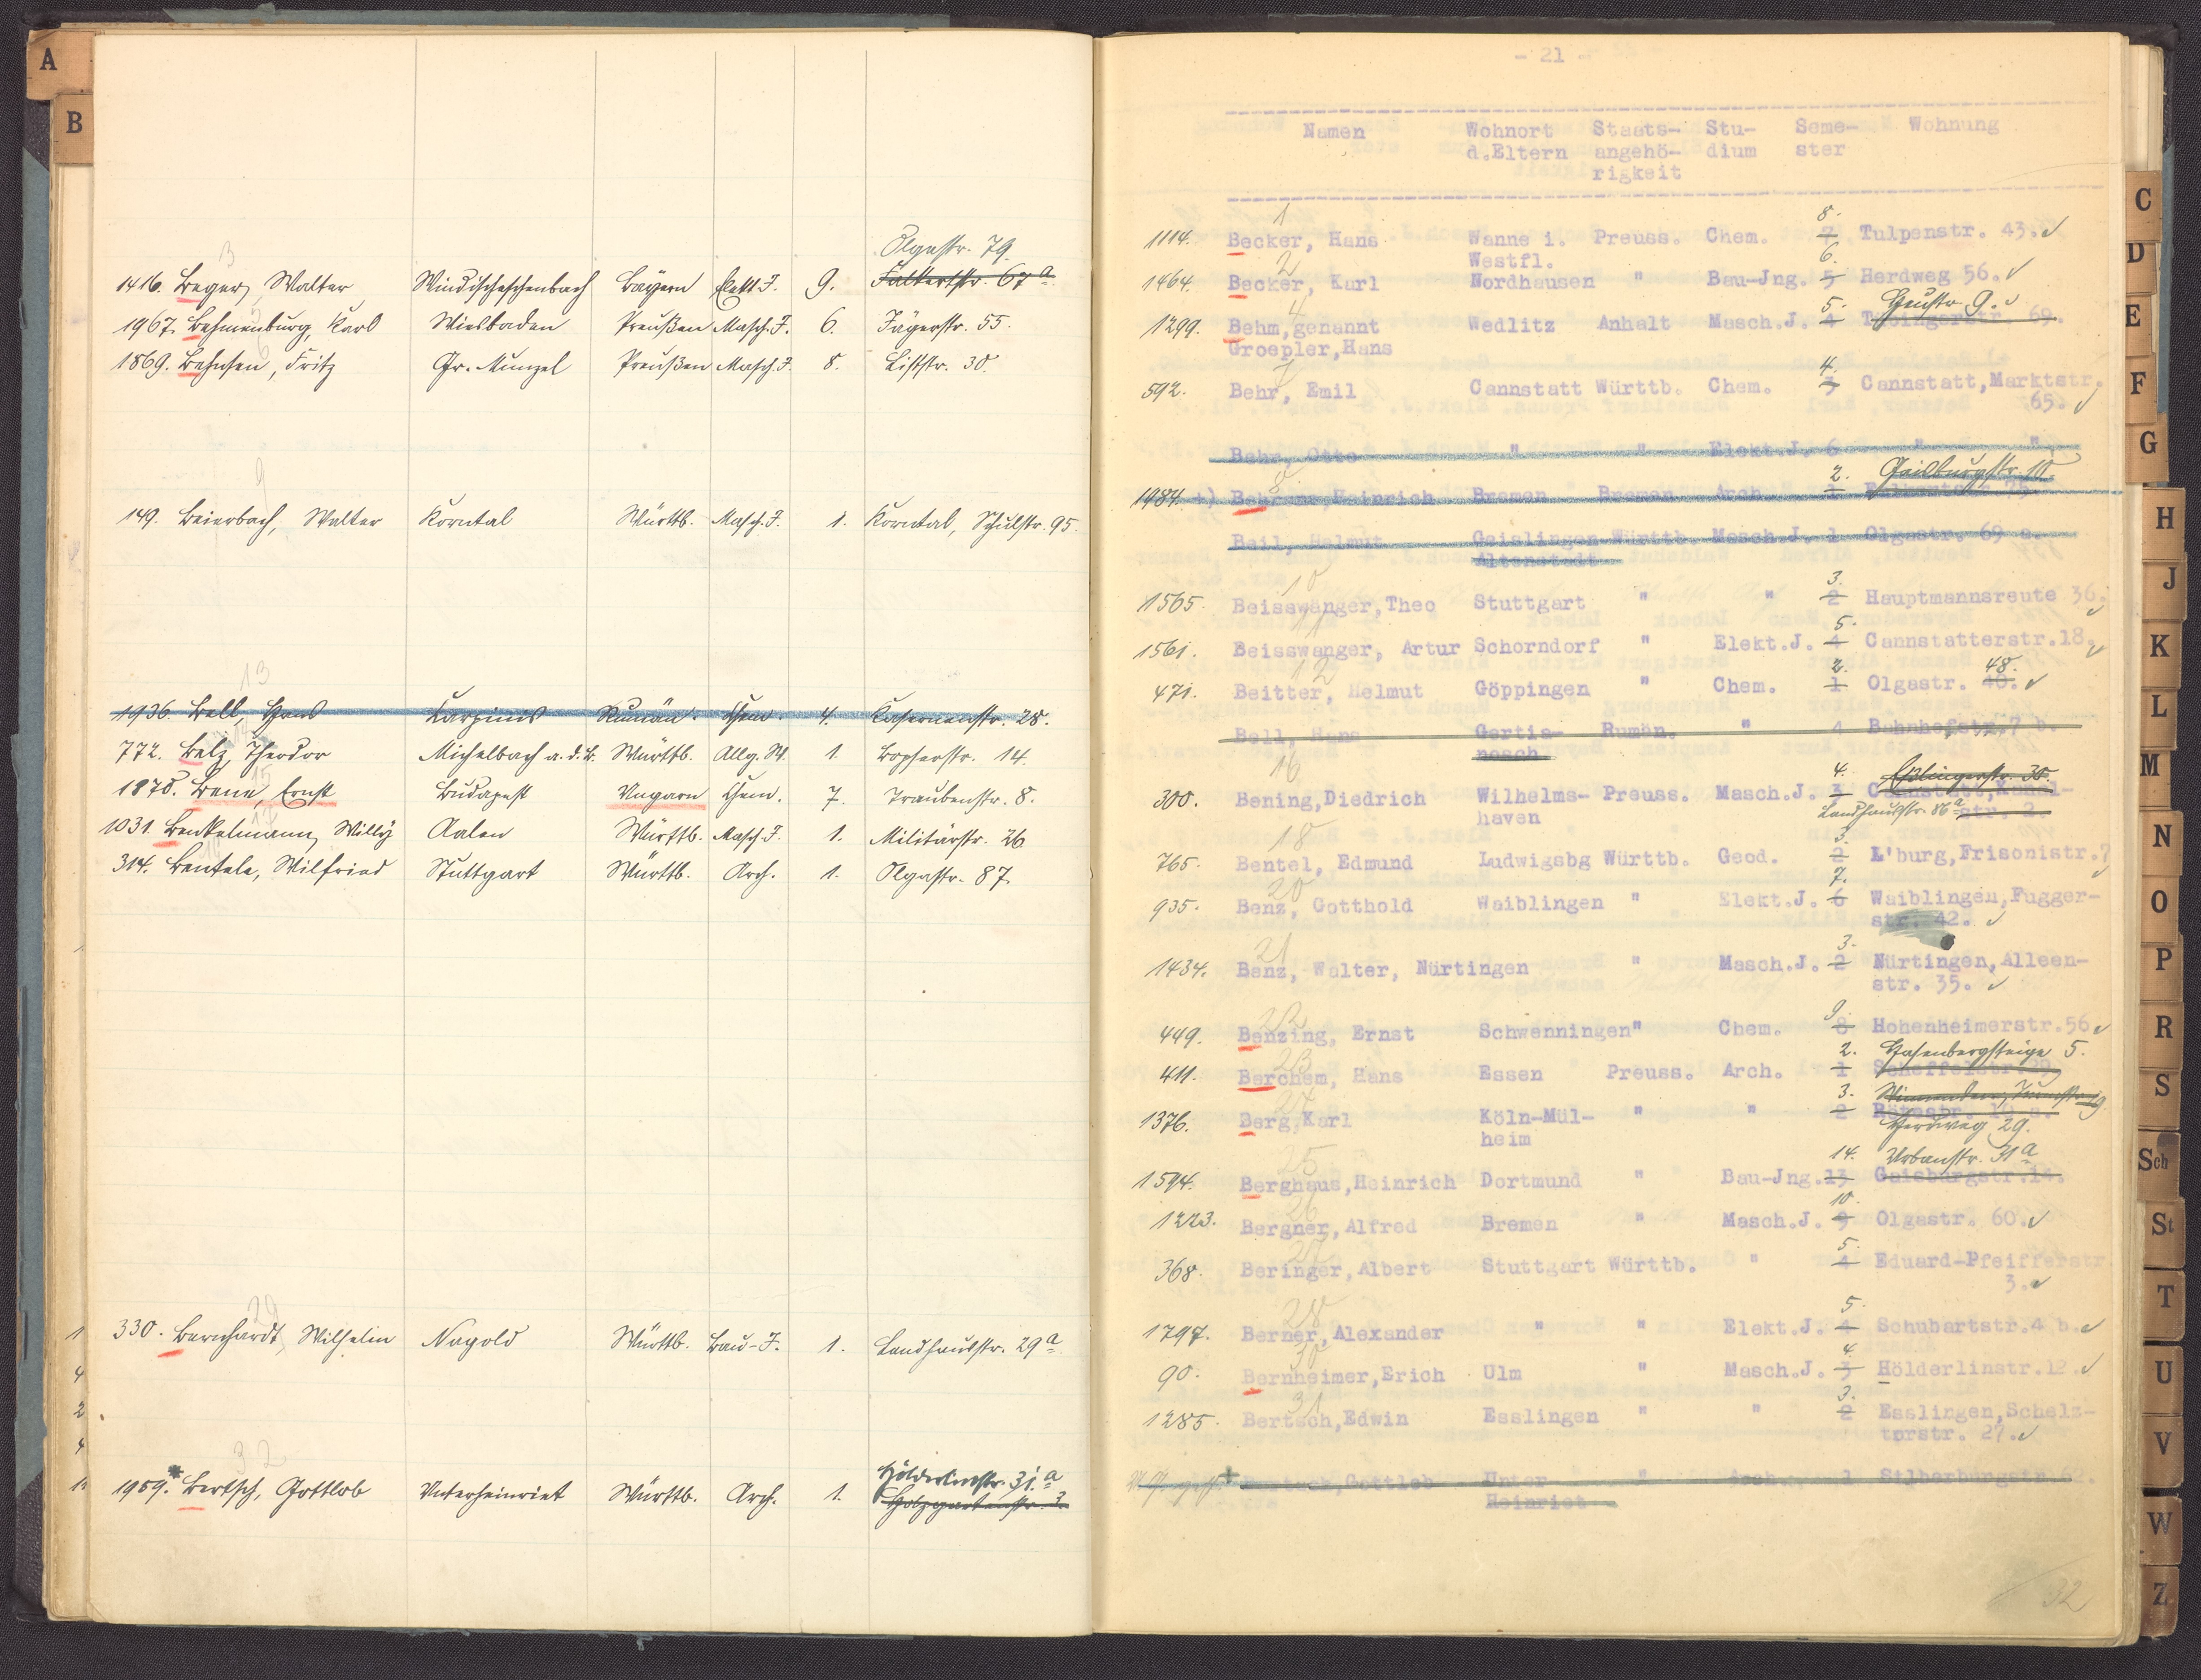 A
B
3
Olgastr. 79.
1416. Beger, Walter Windischeschenbach Bayern Elekt. J. 9. Falkertstr. 67 a.
1967. Behmenburg, Karl Wiesbaden Preußen Masch. J. 6. Jägerstr. 55.
1869. Behnsen, Fritz Gr. Munzel Preußen Masch. J. 8. Liststr. 30.
9
149. Beierbach, Walter Korntal Württb. Masch. J. 1. Korntal, Schulstr. 95.
13
1936. Bell, Hans Rumän. Chem. 4. Kasernenstr. 28.
772. Belz, Theodor Michelbach a. d. B. Württb. Allg. W. 1. Bopserstr. 14.
15
1878. Bene, Ernst Budapest Ungarn Chem. 7. Traubenstr. 8.
17
1031. Benkelmann, Willy Aalen Württb. Masch. J. 1. Militärstr. 26
314. Bentele, Wilfried Stuttgart Württb. Arch. 1. Olgastr. 87.
29
330. Bernhardt, Wilhelm Nagold Württb. Bau-J. 1. Landhausstr. 29 a.
32
Hölderlinstr. 31. a
1959. * Bertsch, Gottlob Unterheinriet Württb. Arch. 1. Holzgartenstr. 3.
- 21 -
Namen Wohnort Staats- Stu- Seme- Wohnung
d.Eltern angehö- dium ster
rigkeit
1 8.
1114. Becker, Hans Wanne i. Preuss. Chem. 7 Tulpenstr. 43.
Westfl.
2 6.
1464. Becker, Karl Nordhausen " Bau-Jng. 5 Herdweg 56.
4 5.
1299. Behm,genannt Wedlitz Anhalt Masch.J. 4
Groepler,Hans
7 4.
592. Behr, Emil Cannstatt Württb. Chem. 3 Cannstatt,Marktstr.
65.
Behr, Otto " " Elekt.J. 6 " "
8 2. Gaisburgstr.
1984. +) Heinrich Bremen Bremen Arch. 1
Beil, Helmut Geislingen Württb. Masch.J. 1 Olgastr. 69 a.
Altenstadt
10 3.
1565. Beisswanger,Theo Stuttgart " " 2 Hauptmannsreute 36.
11 5.
1561. Beisswanger, Artur Schorndorf " Elekt.J. 4 Cannstatterstr.18.
12 2. 48.
471. Beitter, Helmut Göppingen " Chem. 1 Olgastr. 40.
Bell, Hans Gertia- Rumän. " 4 Bahnhofstr.7 b.
nosch
16 4. Eßlingerstr. 30.
300. Bening,Diedrich Wilhelms- Preuss. Masch.J. 3
haven Landhausstr. 86 a str. 2.
18 3.
765. Bentel, Edmund Ludwigsbg Württb. Geod. 2 L'burg,Frisonistr.7
20 7.
935. Benz, Gotthold Waiblingen " Elekt.J. 6 Waiblingen,Fugger-
str. 42.
21 3.
1434. Benz, Walter, Nürtingen " Masch.J. 2 Nürtingen,Alleen-
str. 35.
22 9.
449. Benzing, Ernst Schwenningen" Chem. 8 Hohenheimerstr.56
23 2. Hasenbergsteige 5.
411. Berchem, Hans Essen Preuss. Arch. 1
24 3.
1376. Berg,Karl Köln-Mül- " " 2
heim Herdweg 29.
25 14. Urbanstr. 31 a
1594. Berghaus,Heinrich Dortmund " Bau-Jng.13 Gaisburgstr.14.
26 10.
1223. Bergner,Alfred Bremen " Masch.J. 9 Olgastr. 60.
27 5.
368. Beringer,Albert Stuttgart Württb. " 4 Eduard-Pfeifferstr
3.
28 5.
1797. Berner,Alexander " " Elekt.J. 4 Schubartstr.4 b.
30 4.
90. Bernheimer,Erich Ulm " Masch.J. 3 Hölderlinstr.12.
31 3.
1285. Bertsch,Edwin Esslingen " " 2 Esslingen,Schelz-
torstr. 27.
Bertsch,Gottlob Unter " Arch. 1 Silberburgstr.
Heinriet
32
C
D
E
F
G
H
J
K
L
M
N
O
P
R
S
Sch
St
T
U
V
W
Z